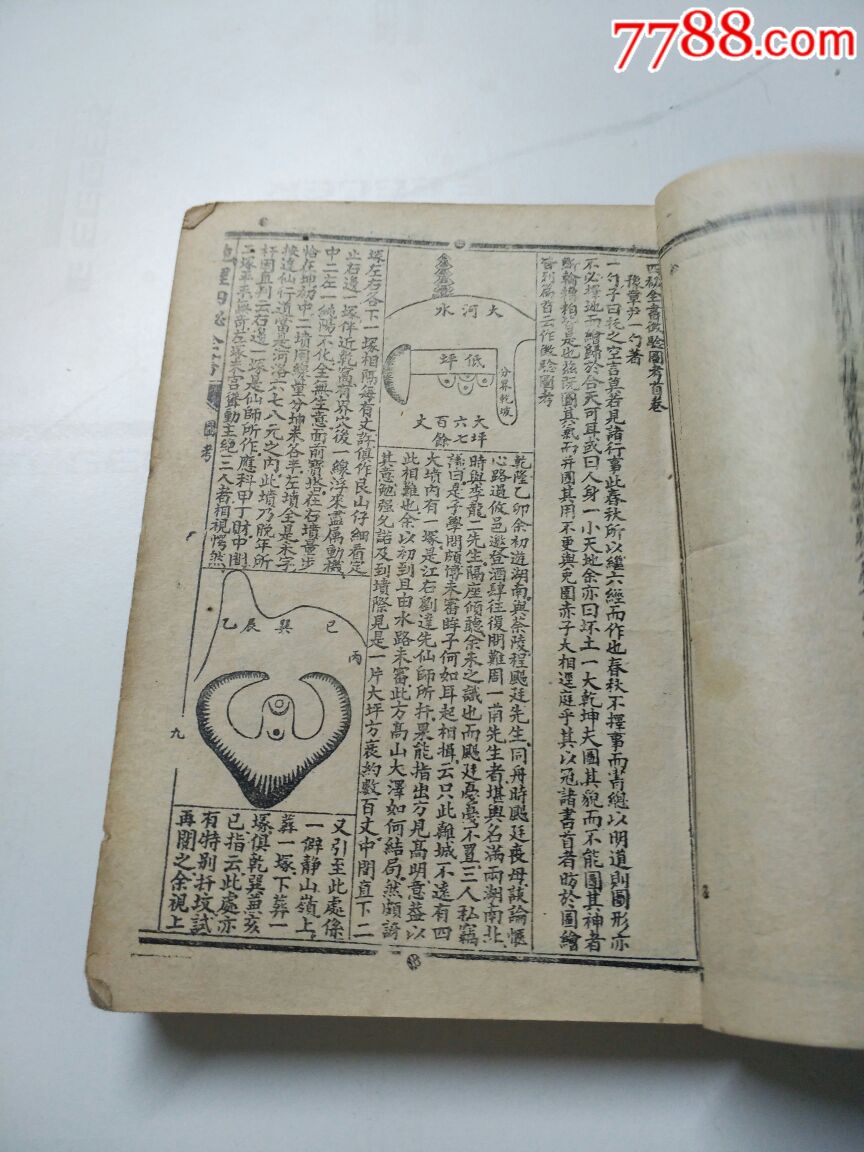 7788.com
四秘全書微騐圖考首卷
豫章尹一勺著
一勺子曰托之空言莫若見諸行事此春秋所以繼六經而作也春秋不擇事而書總以明道則圖形亦
不必擇地而繪歸於合天可耳或曰人身一小天地余亦曰坏土一大乾坤夫圖其貌而不能圖其神者
皆別篇首云作微騐圖考
乾隆乙卯余初遊湖南與茶陵程颺廷先生同舟時颺廷喪母談論愜
心路過攸邑邀登酒肆往復問難周一甫先生者堪輿名滿兩湖南北
時與李龍二先生隔座傾聽余未之識也而颺廷憂憂不置三人私竊
議曰是子學問頗博未審眸子何如耳起相揖云只此離城不遠有四
大墳內有一塚是江右劉達先仙師所扦果能指出方見高明意蓋以
此相難也余以初到且由水路未審此方高山大澤如何結局然頗諳
其意勉强允諾及到墳際見是一片大坪方袤約數百丈中間直下二
大河水
低坪
分幕乾坡
大坪
六七
百餘
丈
塚左右各下一塚相隔每有丈許俱作艮山仔細看定
止右邊一塚伴近乾窩有界穴後一線浮來盡属動機
中二左一純陽不化全無生意面前寶塔在右墳量步
恰在坤初中二墳用線量分坤未各半左墳全是未字
挨達仙行道當是河洛六七八元之內此墳乃晚年所
扦因直判云右邊一塚是仙師所作應科甲丁財中間
二塚平平無奇左塚未宮聳動主絕三人者相視愕然
地理四秘全書
圖考
九
乙辰巽巳
丙
又引至此處係
一僻静山嶺上
葬一塚下葬一
塚俱乾巽兼亥
巳指云此處亦
有特别扦坟試
再閱之余視上